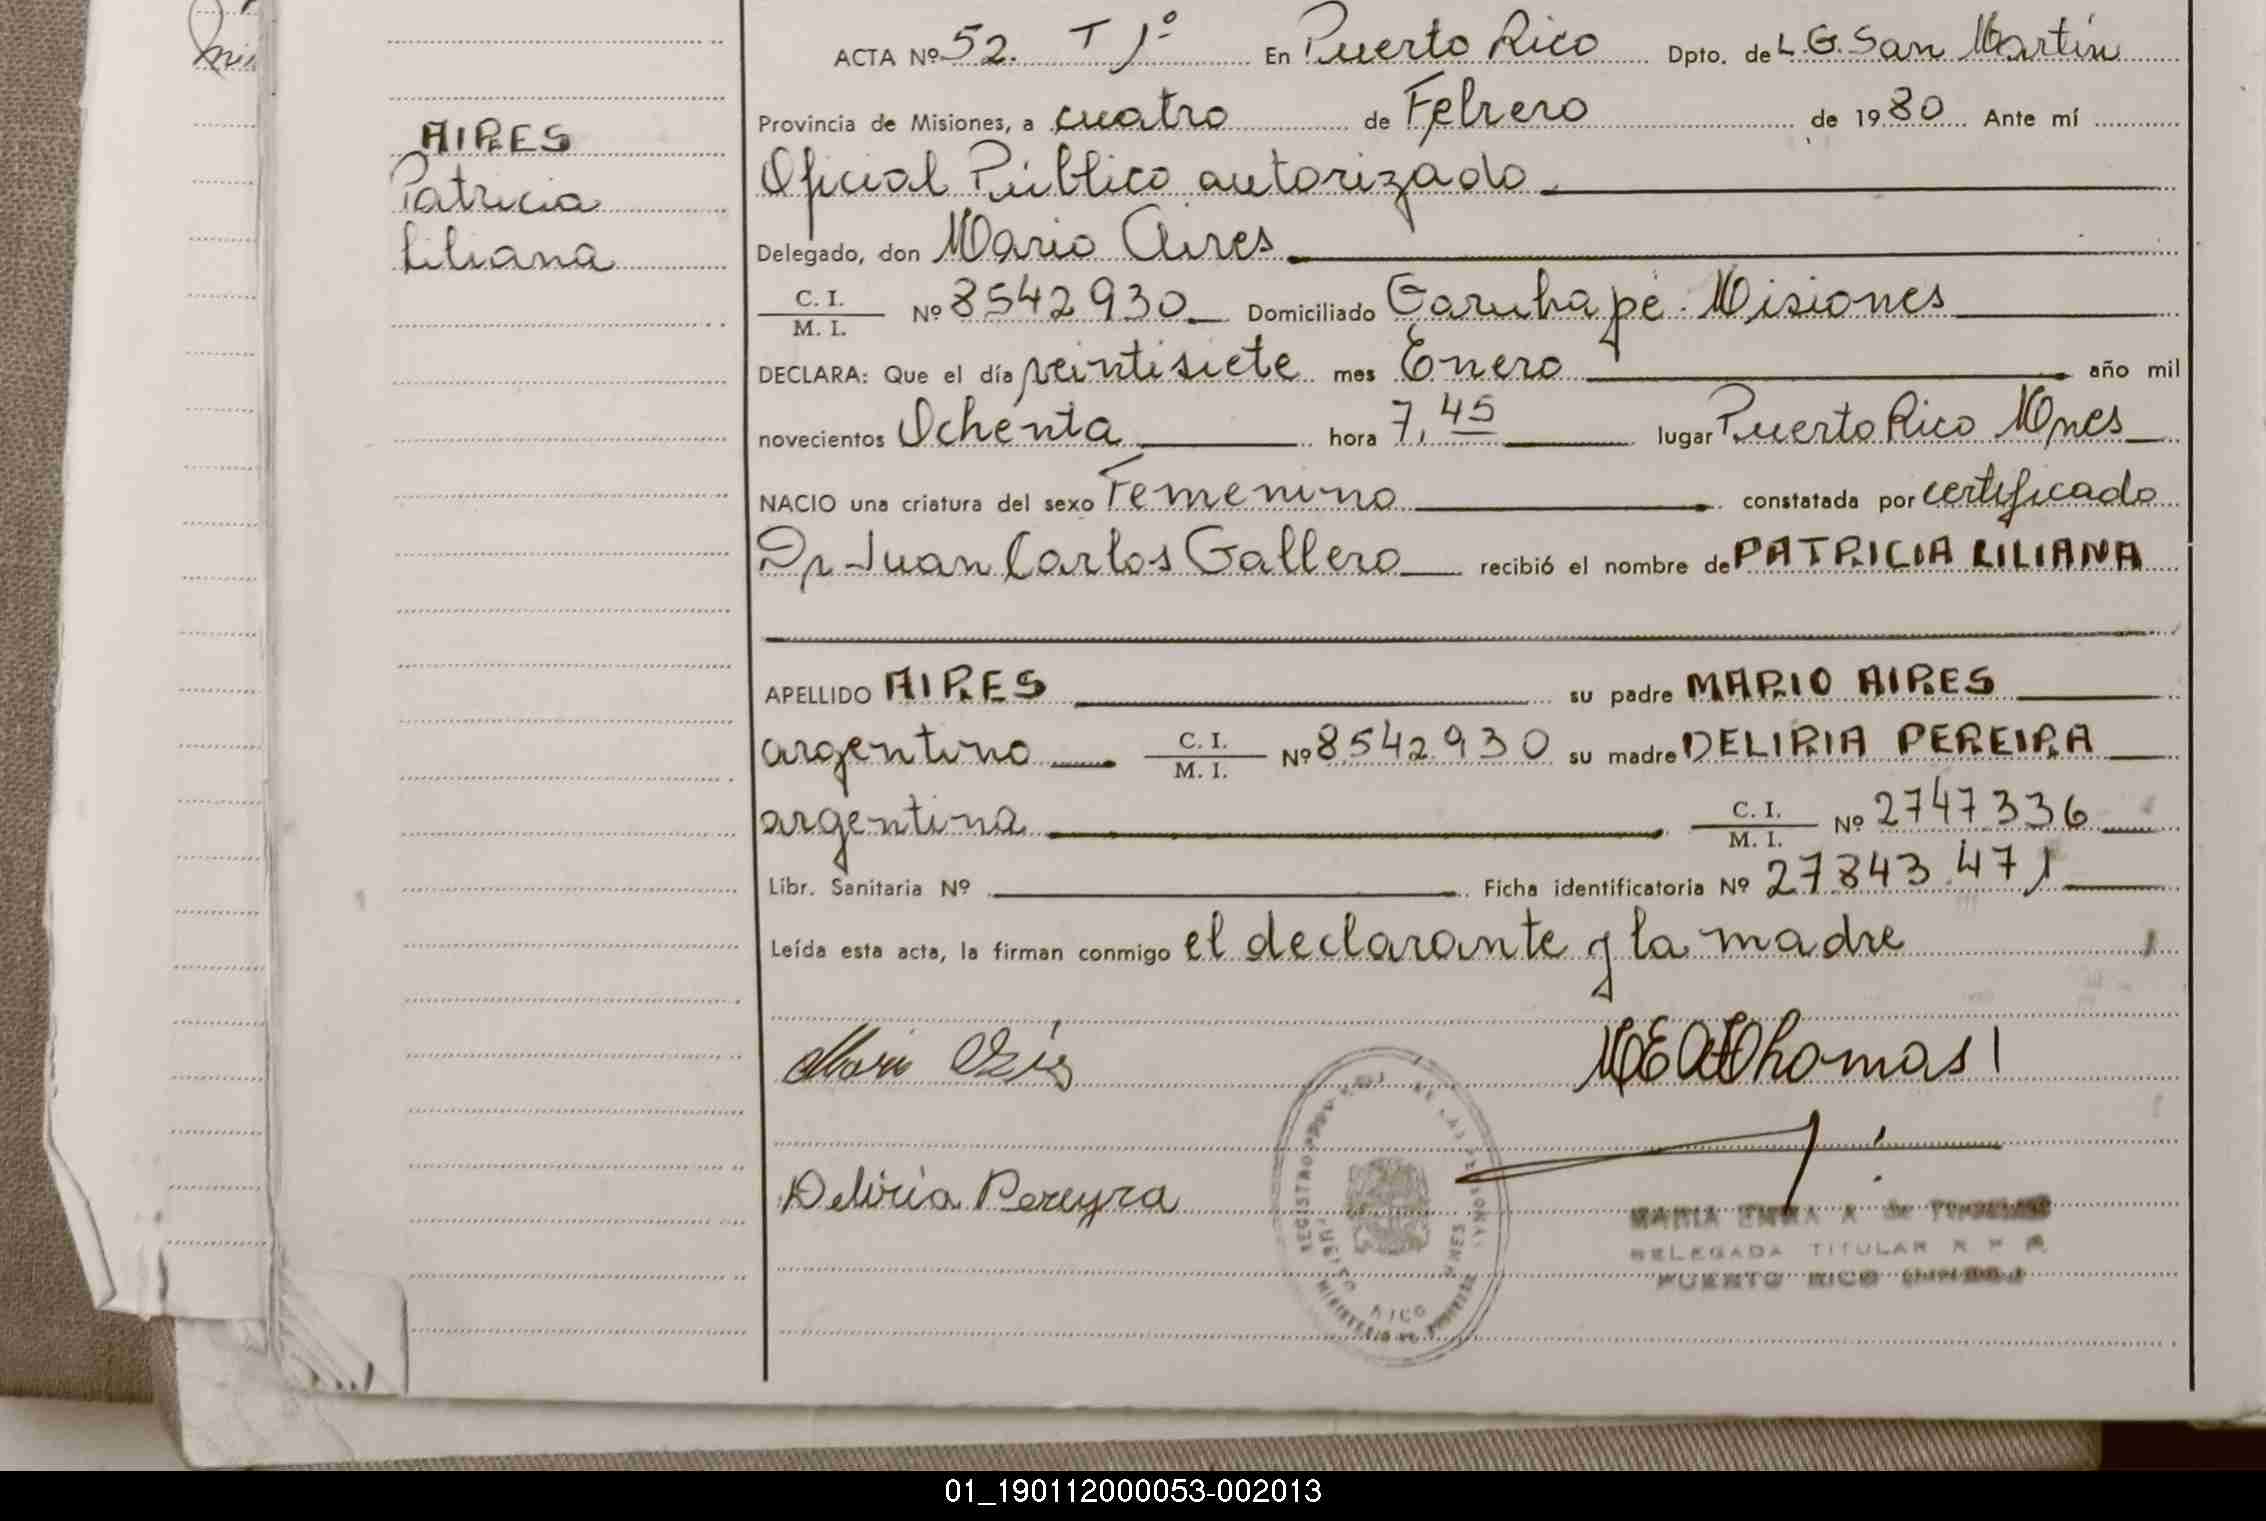 AIRES
Patricia
Liliana
ACTA Nº 52. T 1º En Puerto Rico Dpto. de L.G. San Martín
Provincia de Misiones, a cuatro de Febrero de 1980 Ante mí
Oficial Público autorizado
Delegado, don Mario Aires
C. I.
M. I. Nº 8542930 Domiciliado Garuhapé. Misiones
DECLARA: Que el día veintisiete mes Enero año mil
novecientos Ochenta hora 7,45 lugar Puerto Rico Mnes
NACIO una criatura del sexo Femenino constatada por certificado
Dr Juan Carlos Gallero recibió el nombre de PATRICIA LILIANA
APELLIDO AIRES su padre MARIO AIRES
argentino C. I. M. I. Nº 8542930 su madre DELIRIA PEREIRA
argentina C. I. M. I. Nº 2747336
Libr. Sanitaria Nº Ficha identificatoria Nº 27843.471
Leída esta acta, la firman conmigo el declarante y la madre
Deliria Pereyra
DELEGADA TITULAR
PUERTO RICO
REGISTRO
PUERTO RICO
MNES
01_190112000053-002013